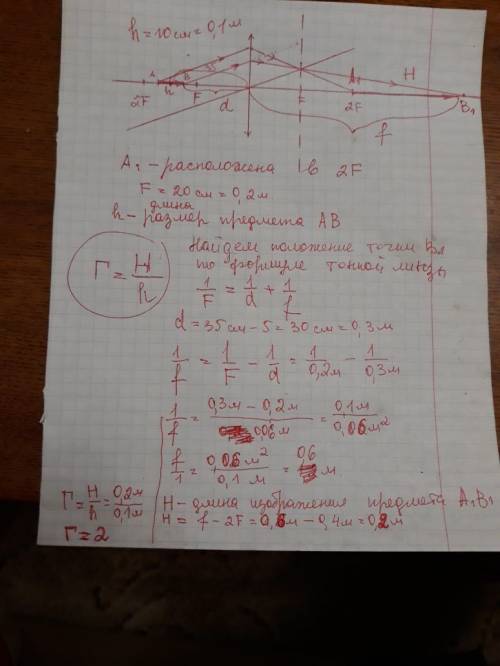 h = 10 см = 0,1 м
A B F d F A₁ H B₁
2F h 2F f
A₁ - расположена в 2F
F = 20 см = 0,2 м
длина
h - размер предмета AB
Найдем положение точки B₁
по формуле тонкой линзы
Г = H/h
1/F = 1/d + 1/f
d = 35 см - 5 = 30 см = 0,3 м
1/f = 1/F - 1/d = 1/0,2м - 1/0,3м
1/f = (0,3м - 0,2м)/0,06м = 0,1м/0,06м²
f/1 = 0,06м²/0,1м = 0,6 м
Г = H/h = 0,2м/0,1м
Г = 2
H - длина изображения предмета A₁B₁
H = f - 2F = 0,6м - 0,4м = 0,2м